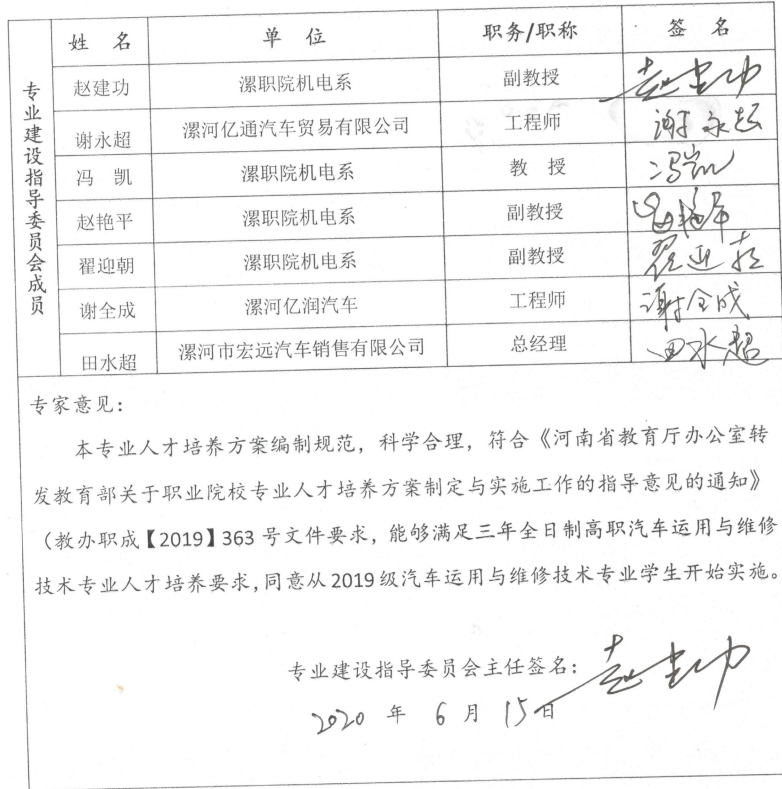 姓 名 单 位 职务/职称 签 名
专业建设指导委员会成员
赵建功 漯职院机电系 副教授 赵建功
谢永超 漯河亿通汽车贸易有限公司 工程师 谢永超
冯 凯 漯职院机电系 教 授 冯凯
赵艳平 漯职院机电系 副教授 赵艳平
翟迎朝 漯职院机电系 副教授 翟迎朝
谢全成 漯河亿润汽车 工程师 谢全成
田水超 漯河市宏远汽车销售有限公司 总经理 田水超
专家意见：
本专业人才培养方案编制规范，科学合理，符合《河南省教育厅办公室转
发教育部关于职业院校专业人才培养方案制定与实施工作的指导意见的通知》
（教办职成【2019】363 号文件要求，能够满足三年全日制高职汽车运用与维修
技术专业人才培养要求,同意从2019级汽车运用与维修技术专业学生开始实施。
专业建设指导委员会主任签名：赵建功
2020 年 6 月 15日